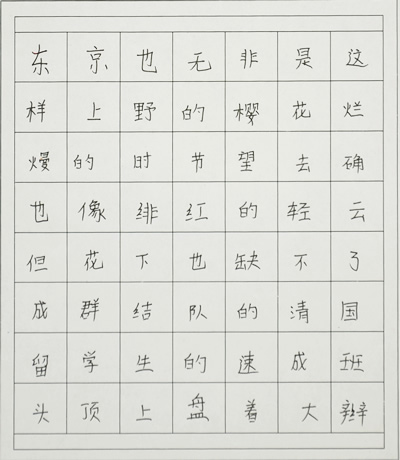 东京也无非是这
样上野的樱花烂
熳的时节望去确
也像绯红的轻云
但花下也缺不了
成群结队的清国
留学生的速成班
头顶上盘着大辫